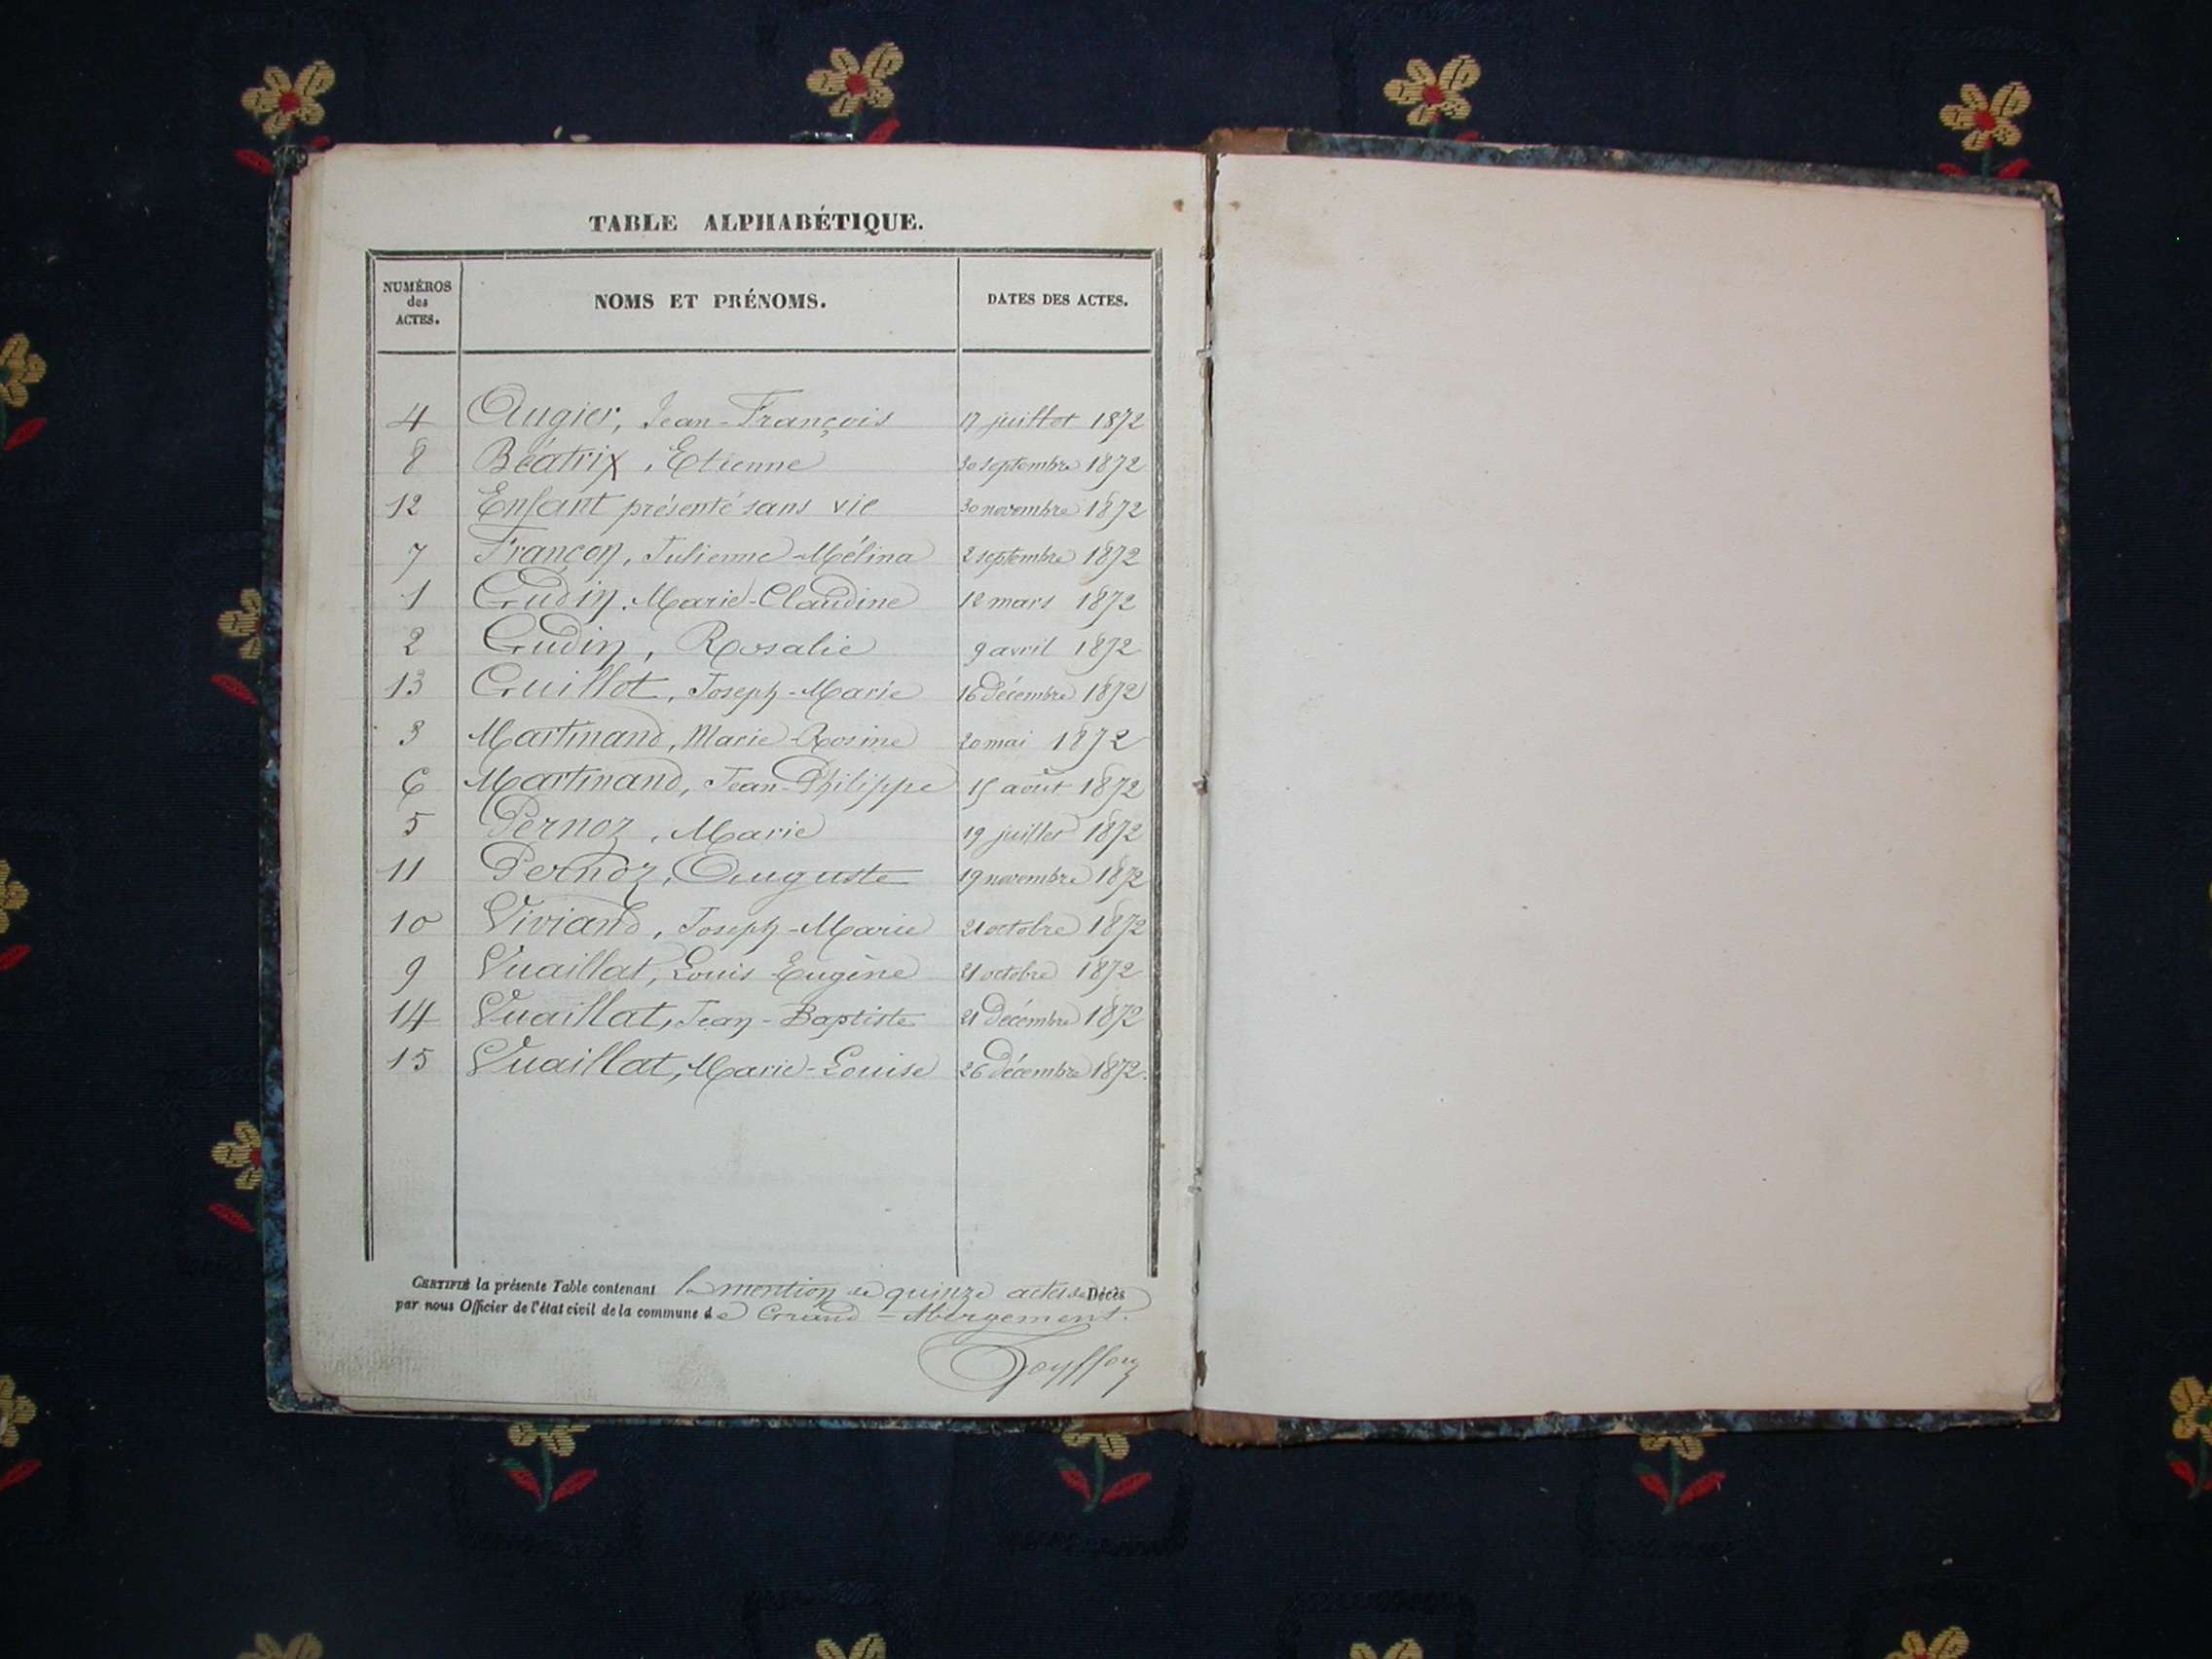 TABLE ALPHABÉTIQUE.
NUMÉROS des ACTES. NOMS ET PRÉNOMS. DATES DES ACTES.
4 Augier, Jean-François 17 juillet 1872
8 Béatrix, Etienne 30 septembre 1872
12 Enfant présenté sans vie 30 novembre 1872
7 Françon, Julienne-Mélina 2 septembre 1872
1 Gudin, Marie-Claudine 12 mars 1872
2 Gudin, Rosalie 9 avril 1872
13 Guillot, Joseph-Marie 16 décembre 1872
3 Martinand, Marie-Rosine 20 mai 1872
6 Martinand, Jean-Philippe 15 août 1872
5 Pernoz, Marie 19 juillet 1872
11 Pernoz, Auguste 19 novembre 1872
10 Viviand, Joseph-Marie 21 octobre 1872
9 Vuaillat, Louis Eugène 21 octobre 1872
14 Vuaillat, Jean-Baptiste 21 décembre 1872
15 Vuaillat, Marie-Louise 26 décembre 1872.
CERTIFIÉ la présente Table contenant la mention de quinze actes de Décès
par nous Officier de l'état civil de la commune de Grand-Abergement.